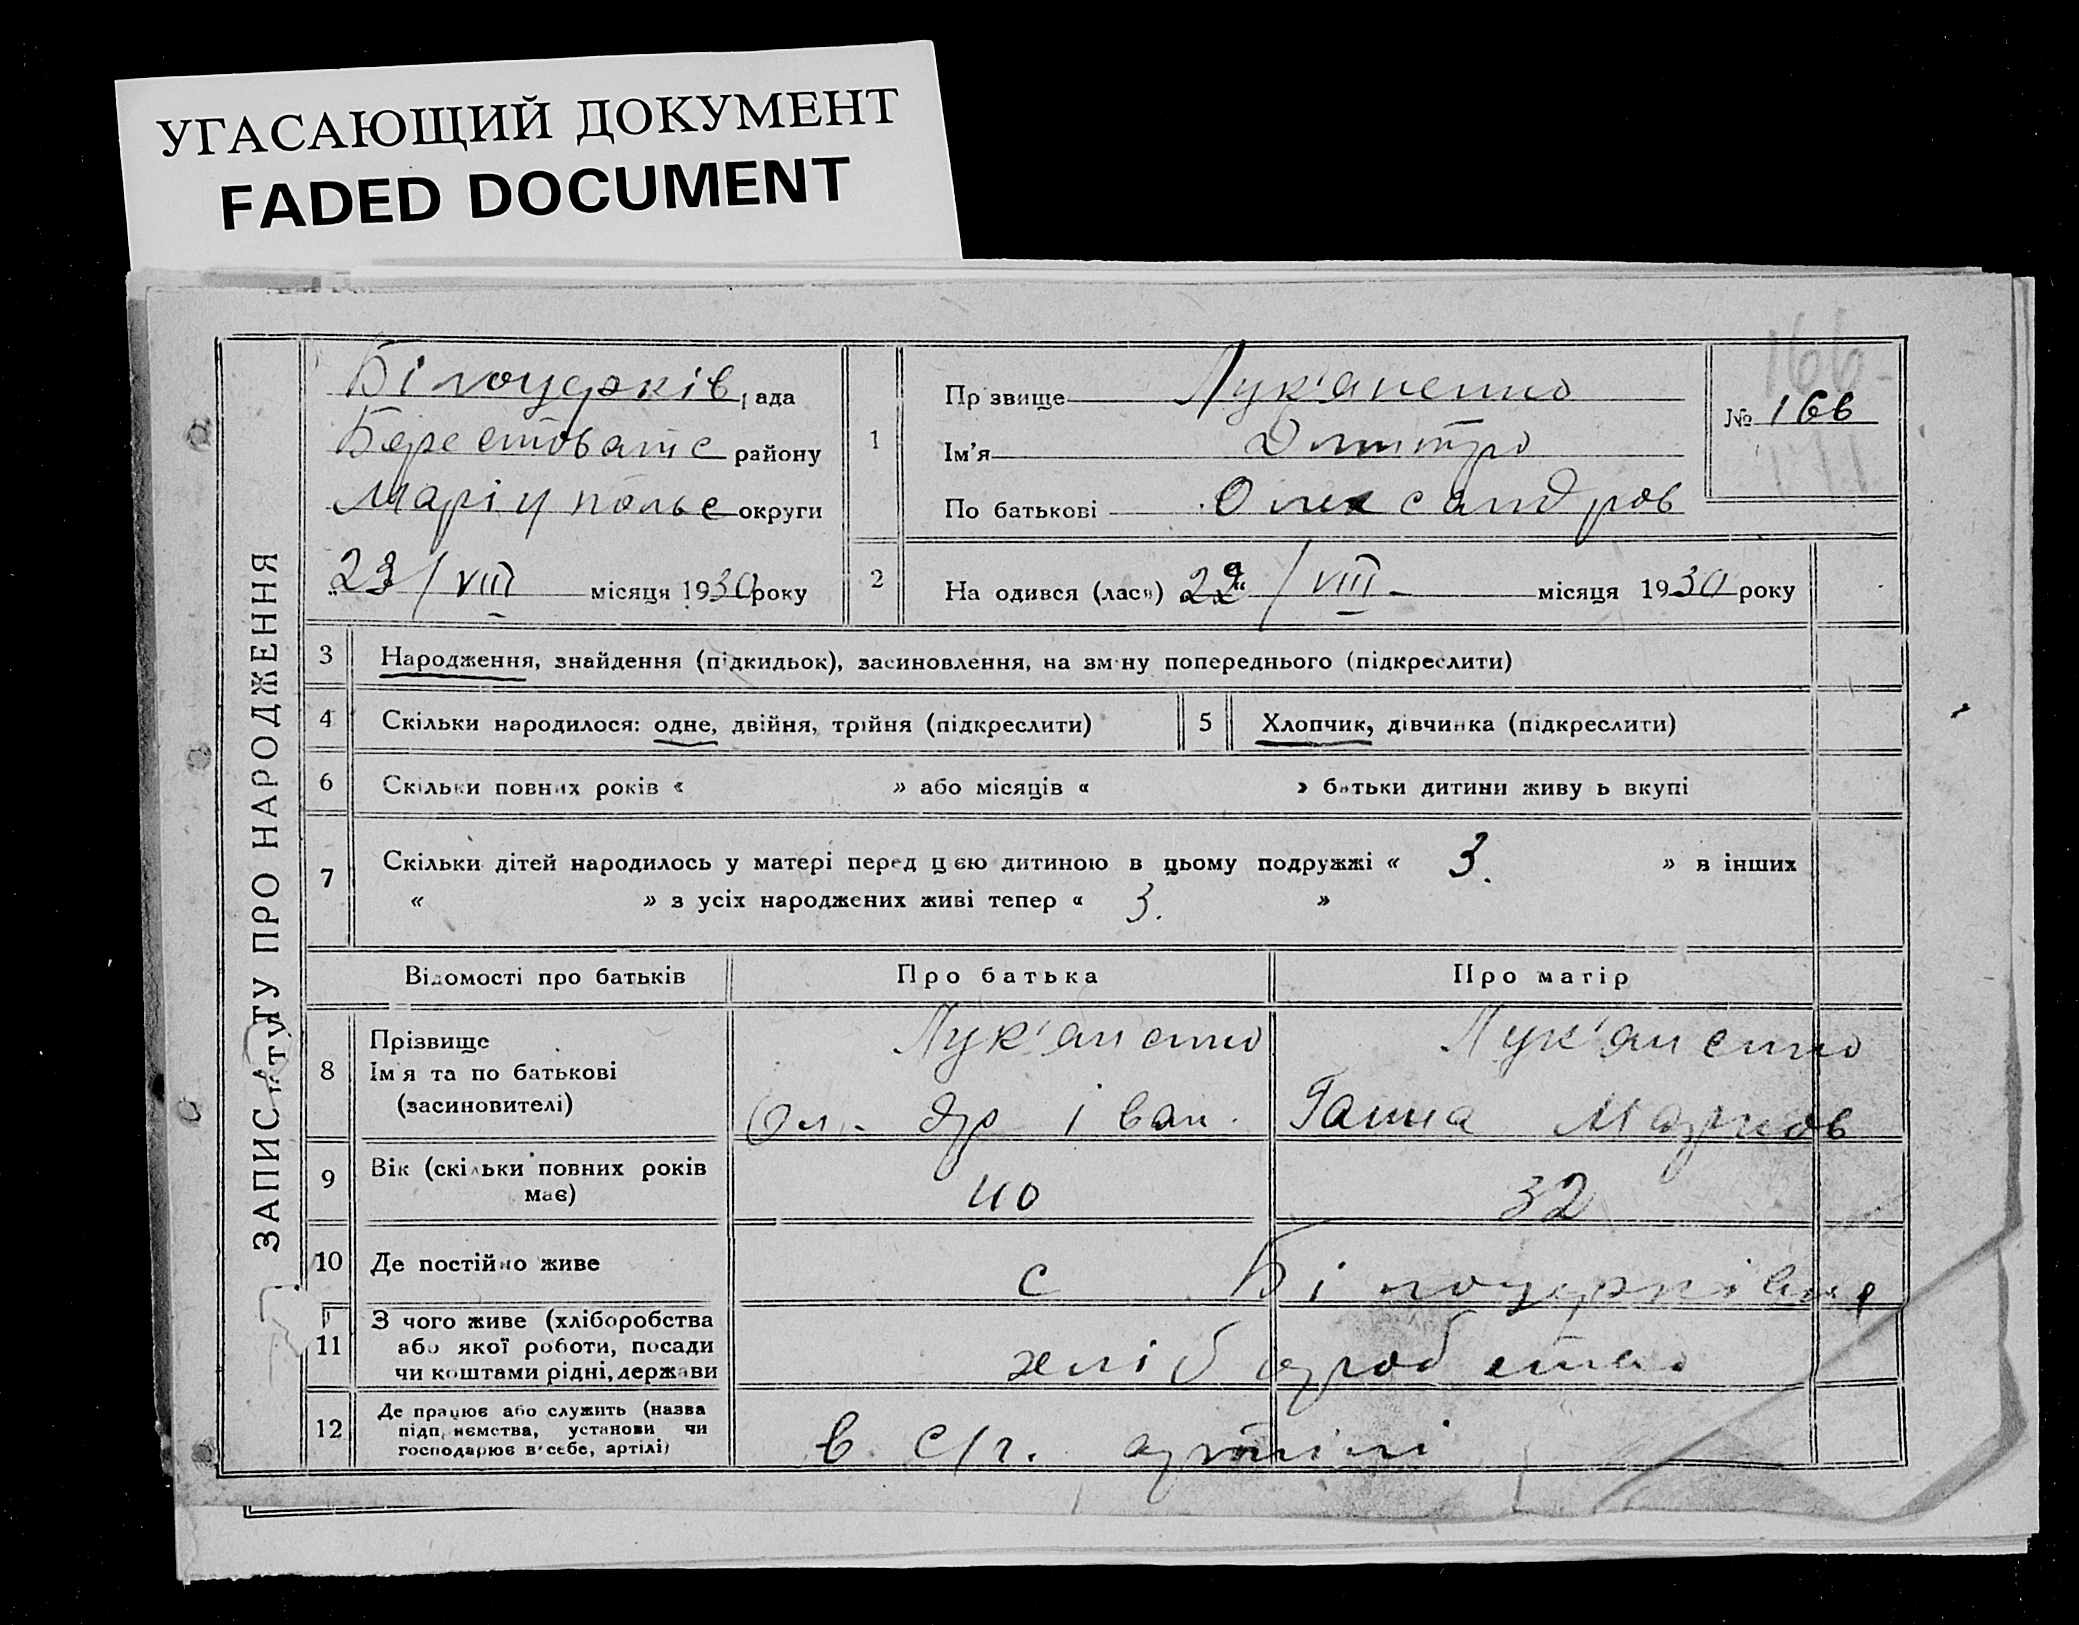 УГАСАЮЩИЙ ДОКУМЕНТ
FADED DOCUMENT
ЗАПИС АКТУ ПРО НАРОДЖЕННЯ
рада
Берестоватс району
Маріупольс округи
23/VIII місяця 1930 року
1
Прізвище Лук'яненко
Ім'я Дмитро
По батькові Олександров
№ 166
166
171
2
Народився (лася) 22/VIII місяця 1930 року
3 Народження, знайдення (підкидьок), засиновлення, на зміну попереднього (підкреслити)
4 Скільки народилося: одне, двійня, трійня (підкреслити)
5 Хлопчик, дівчинка (підкреслити)
6 Скільки повних років « » або місяців « » батьки дитини живуть вкупі
7 Скільки дітей народилось у матері перед цією дитиною в цьому подружжі « 3. » в інших
« » з усіх народжених живі тепер « 3. »
Відомості про батьків Про батька Про матір
8 Прізвище
Ім'я та по батькові
(засиновителі)
Лук'яненко
Ол-др Іван.
Лук'яненко
Ганна Марков
9 Вік (скільки повних років
має)
40 32
10 Де постійно живе с Білоцерківка
11 З чого живе (хліборобства
або якої роботи, посади
чи коштами рідні, держави
хліборобство
12 Де працює або служить (назва
підприємства, установи чи
господарює в себе, артілі)
в с/г. артілі